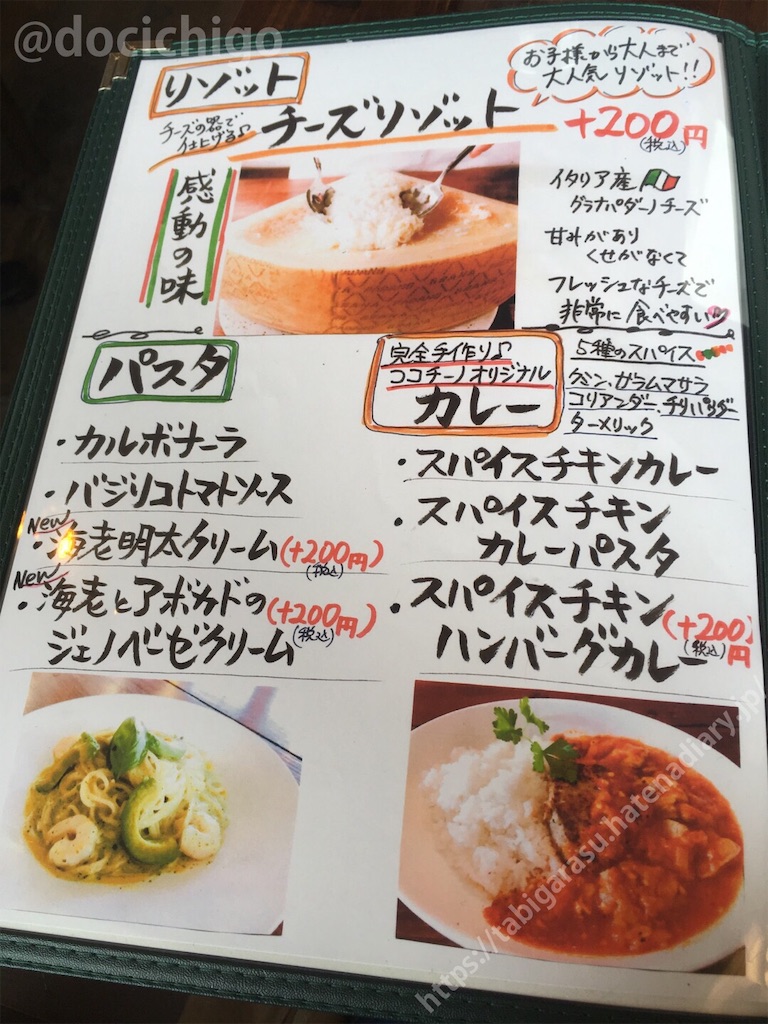 @docichigo
リゾット
お子様から大人まで
大人気リゾット!!
チーズの器で
仕上げる♪
チーズリゾット
+200円
(税込)
感動の味
イタリア産
グラナパダーノチーズ
甘みがあり
くせがなくて
フレッシュなチーズで
非常に食べやすい♡
パスタ
・カルボナーラ
・バジリコトマトソース
New
・海老明太クリーム(+200円)
(税込)
New
・海老とアボカドの
ジェノベーゼクリーム
(+200円)
(税込)
完全手作り♪
ココチーノオリジナル
カレー
5種のスパイス
クミン、ガラムマサラ
コリアンダー、チリパウダー
ターメリック
・スパイスチキンカレー
・スパイスチキン
カレーパスタ
・スパイスチキン
ハンバーグカレー
(+200
円
(税込)
https://tabigarasu.hatenadiary.jp/